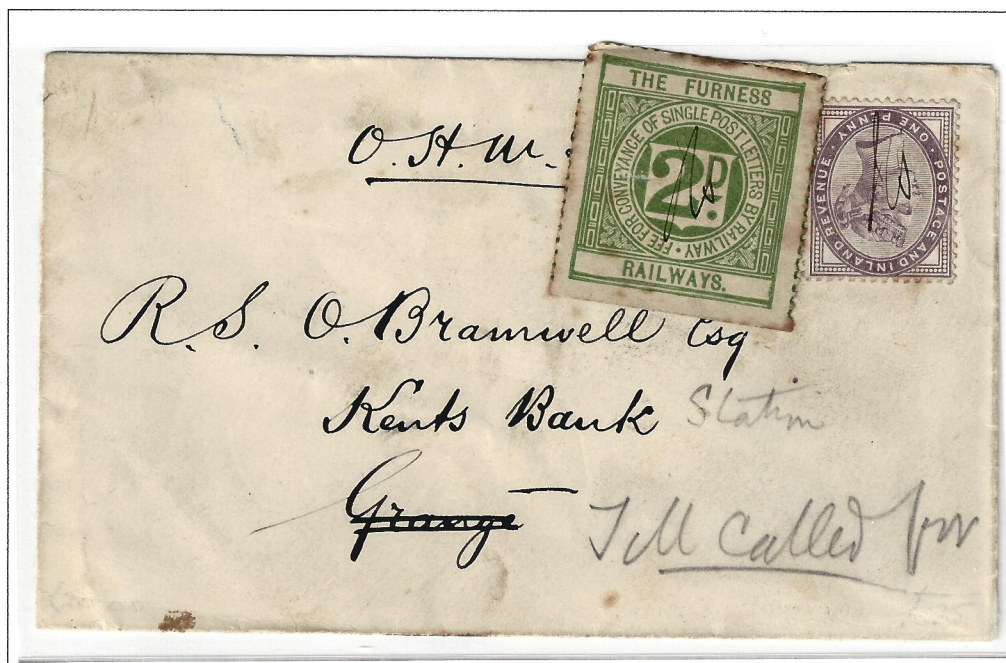 O. H. M.
THE FURNESS
FEE FOR CONVEYANCE OF SINGLE POST LETTERS BY RAILWAY
2D.
RAILWAYS.
POSTAGE AND INLAND REVENUE
ONE PENNY
R. S. O. Bramwell Esq
Kents Bank Station
Grange
Till Called for